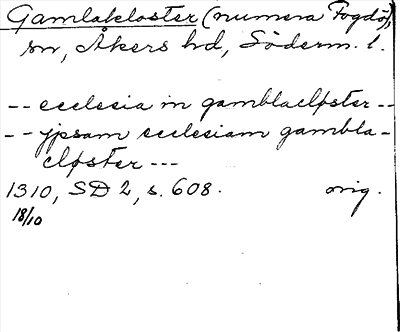 Gamlakloster (numera Fogdö),
sn, Åkers hd, Söderm. l.
-- ecclesia in gamblacløster --
-- jpsam ecclesiam gambla-
cløster ---
1310, SD 2, s. 608. orig.
18/10